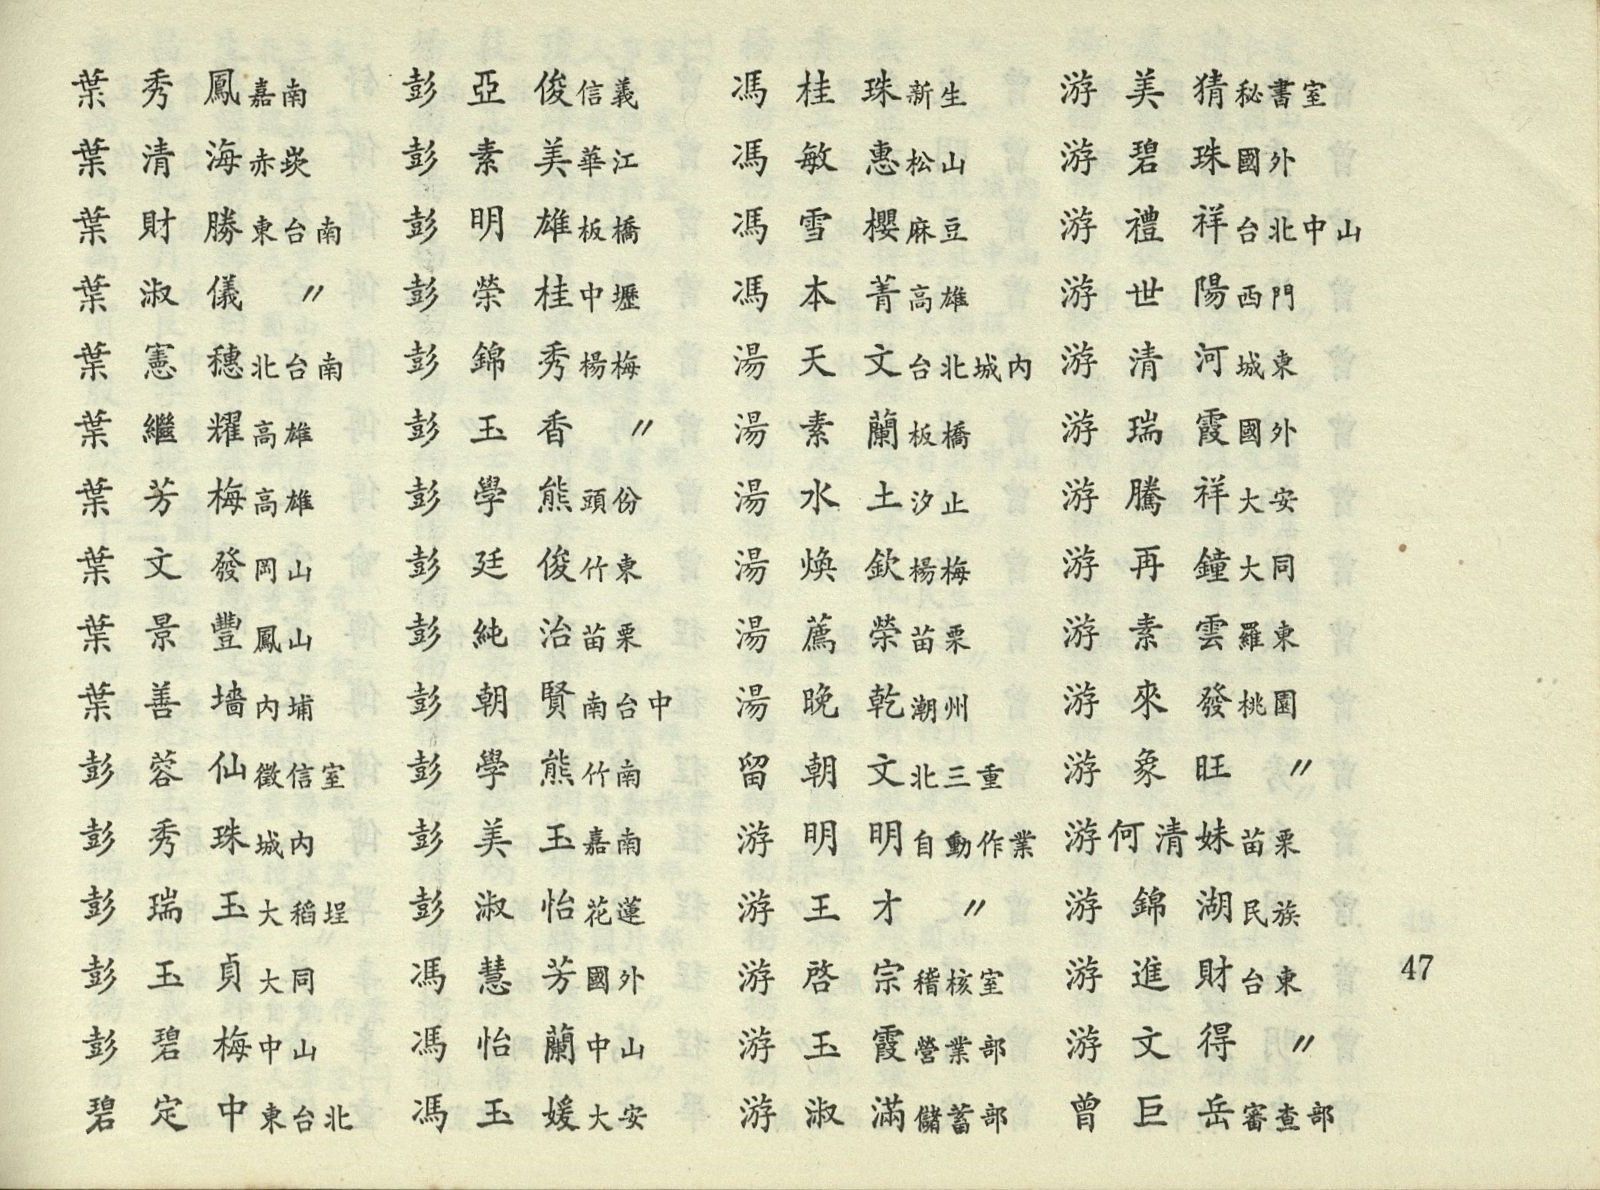 葉秀鳳嘉南
葉清海赤崁
葉財勝東台南
葉淑儀 〃
葉憲穗北台南
葉繼耀高雄
葉芳梅高雄
葉文發岡山
葉景豐鳳山
葉善墻內埔
彭蓉仙徵信室
彭秀珠城內
彭瑞玉大稻埕
彭玉貞大同
彭碧梅中山
碧定中東台北
彭亞俊信義
彭素美華江
彭明雄板橋
彭榮桂中壢
彭錦秀楊梅
彭玉香 〃
彭學熊頭份
彭廷俊竹東
彭純治苗栗
彭朝賢南台中
彭學熊竹南
彭美玉嘉南
彭淑怡花蓮
馮慧芳國外
馮怡蘭中山
馮玉媛大安
馮桂珠新生
馮敏惠松山
馮雪櫻麻豆
馮本菁高雄
湯天文台北城內
湯素蘭板橋
湯水土汐止
湯煥欽楊梅
湯薦榮苗栗
湯晚乾潮州
留朝文北三重
游明明自動作業
游王才 〃
游啓宗稽核室
游玉霞營業部
游淑滿儲蓄部
游美猜秘書室
游碧珠國外
游禮祥台北中山
游世陽西門
游清河城東
游瑞霞國外
游騰祥大安
游再鐘大同
游素雲羅東
游來發桃園
游象旺 〃
游何清妹苗栗
游錦湖民族
游進財台東
游文得 〃
曾巨岳審查部
47